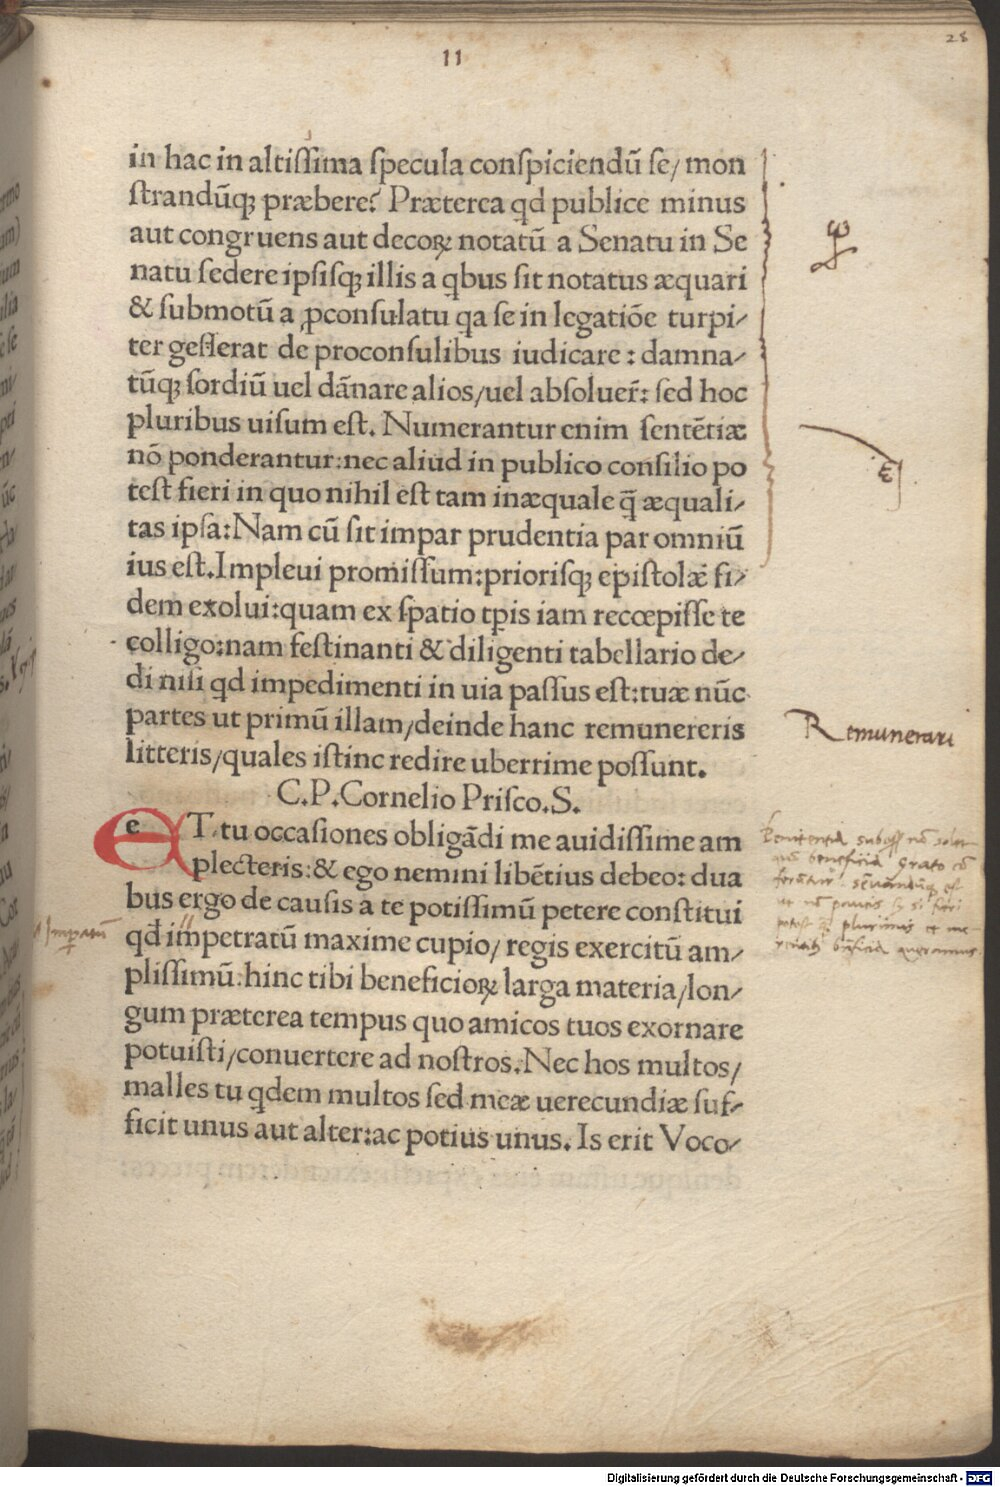 11
28
in hac in altissima specula conspiciendū se/ mon
strandūqꝫ præbere? Præterea qd publice minus
aut congruens aut decoꝝ notatū a Senatu in Se
natu sedere ipsisqꝫ illis a qbus sit notatus æquari
& submotū a ꝓconsulatu qa se in legatiōe turpi/
ter gesserat de proconsulibus iudicare : damna/
tūqꝫ sordiū uel dānare alios/uel absoluer̄: sed hoc
pluribus uisum est. Numerantur enim sentētiæ
nō ponderantur:nec aliud in publico consilio po
test fieri in quo nihil est tam inæquale q̄ æquali/
tas ipsa:Nam cū sit impar prudentia par omniū
ius est.Impleui promissum:priorisqꝫ epistolæ fi/
dem exolui:quam ex spatio tp̄is iam recœpisse te
colligo:nam festinanti & diligenti tabellario de/
di nisi qd impedimenti in uia passus est:tuæ nūc
partes ut primū illam/deinde hanc remunereris
litteris/quales istinc redire uberrime possunt.
Remunerari
C.P.Cornelio Prisco.S.
e T tu occasiones obligādi me auidissime am
plecteris:& ego nemini libētius debeo: dua
bus ergo de causis a te potissimū petere constitui
qđ impetratū maxime cupio/ regis exercitū am/
plissimū:hinc tibi beneficioꝝ larga materia/lon/
gum præterea tempus quo amicos tuos exornare
potuisti/conuertere ad nostros.Nec hos multos/
malles tu qdem multos sed meæ uerecundiæ suf/
ficit unus aut alter:ac potius unus. Is erit Voco/
Digitalisierung gefördert durch die Deutsche Forschungsgemeinschaft - DFG